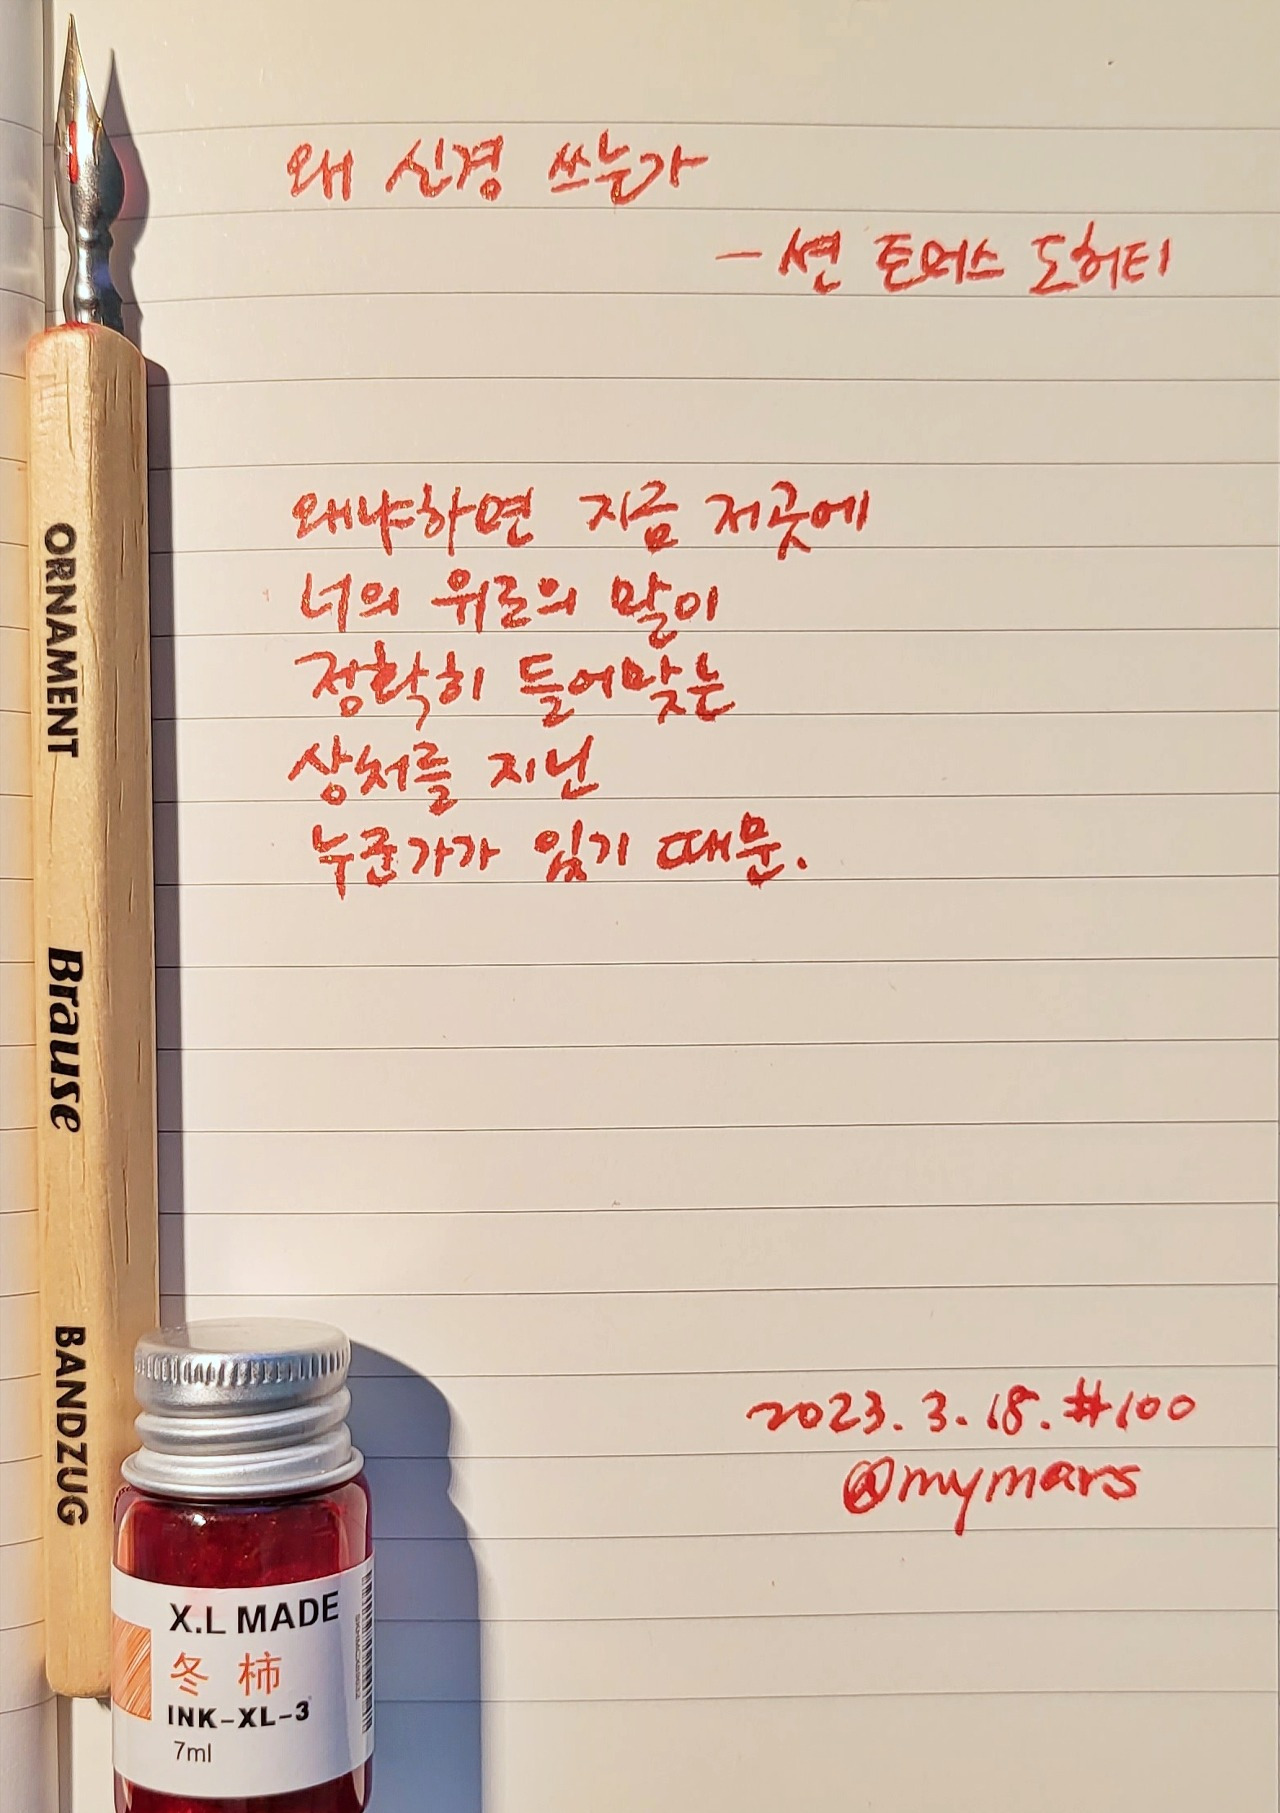 왜 신경 쓰는가
- 션 토머스 도허티
왜냐하면 지금 저곳에
너의 위로의 말이
정확히 들어맞는
상처를 지닌
누군가가 있기 때문.
2023.3.18.#100
@mymars
ORNAMENT Brause BANDZUG
X.L MADE
冬柿
INK-XL-3
7ml